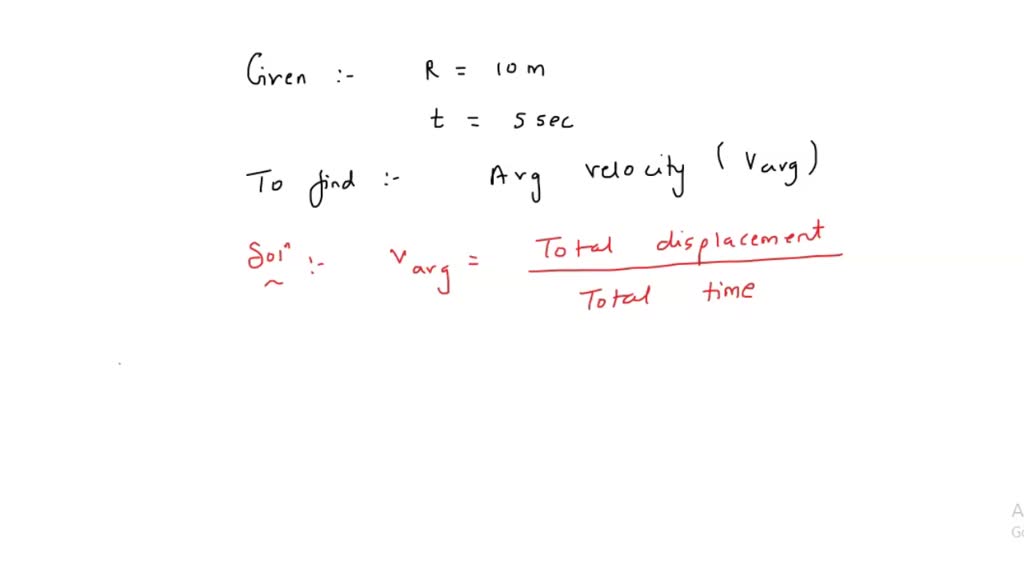 Given :- R = 10 m
t = 5 sec
To find :- Avg velocity ( Vavg )
Solⁿ :- Vavg = Total displacement
Total time
A
Go